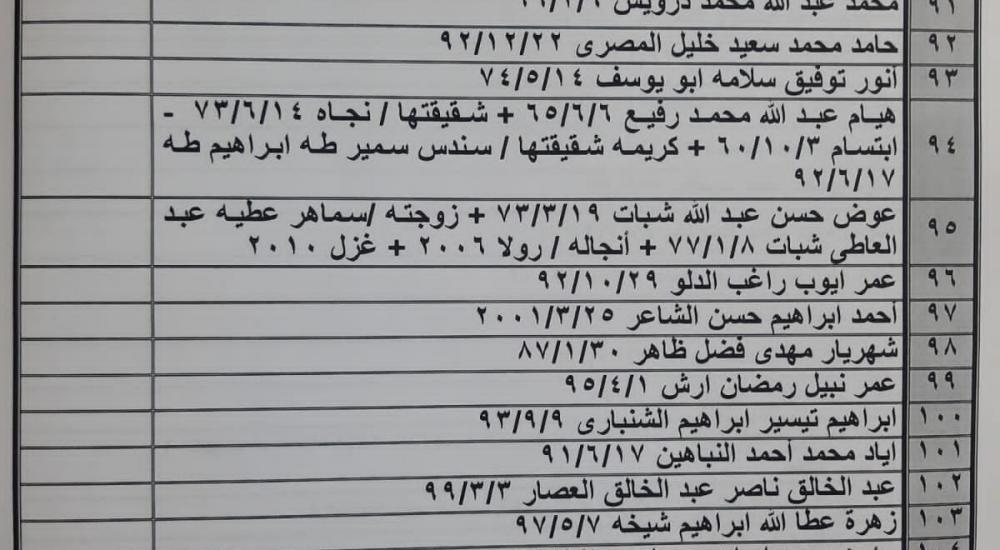 ٩١ محمد عبد الله محمد درويش
٩٢ حامد محمد سعيد خليل المصرى ٩٢/١٢/٢٢
٩٣ أنور توفيق سلامه ابو يوسف ٧٤/٥/١٤
هيام عبد الله محمد رفيع ٦٥/٦/٦ + شقيقتها / نجاه ٧٣/٦/١٤ -
٩٤ ابتسام ٦٠/١٠/٣ + كريمه شقيقتها / سندس سمير طه ابراهيم طه
٩٢/٦/١٧
٩٥ عوض حسن عبد الله شبات ٧٣/٣/١٩ + زوجته /سماهر عطيه عبد
العاطي شبات ٧٧/١/٨ + أنجاله / رولا ٢٠٠٦ + غزل ٢٠١٠
٩٦ عمر ايوب راغب الدلو ٩٢/١٠/٢٩
٩٧ أحمد ابراهيم حسن الشاعر ٢٠٠١/٣/٢٥
٩٨ شهريار مهدى فضل ظاهر ٨٧/١/٣٠
٩٩ عمر نبيل رمضان ارش ٩٥/٤/١
١٠٠ ابراهيم تيسير ابراهيم الشنبارى ٩٣/٩/٩
١٠١ اياد محمد أحمد النباهين ٩١/٦/١٧
١٠٢ عبد الخالق ناصر عبد الخالق العصار ٩٩/٣/٣
١٠٣ زهرة عطا الله ابراهيم شيخه ٩٧/٥/٧